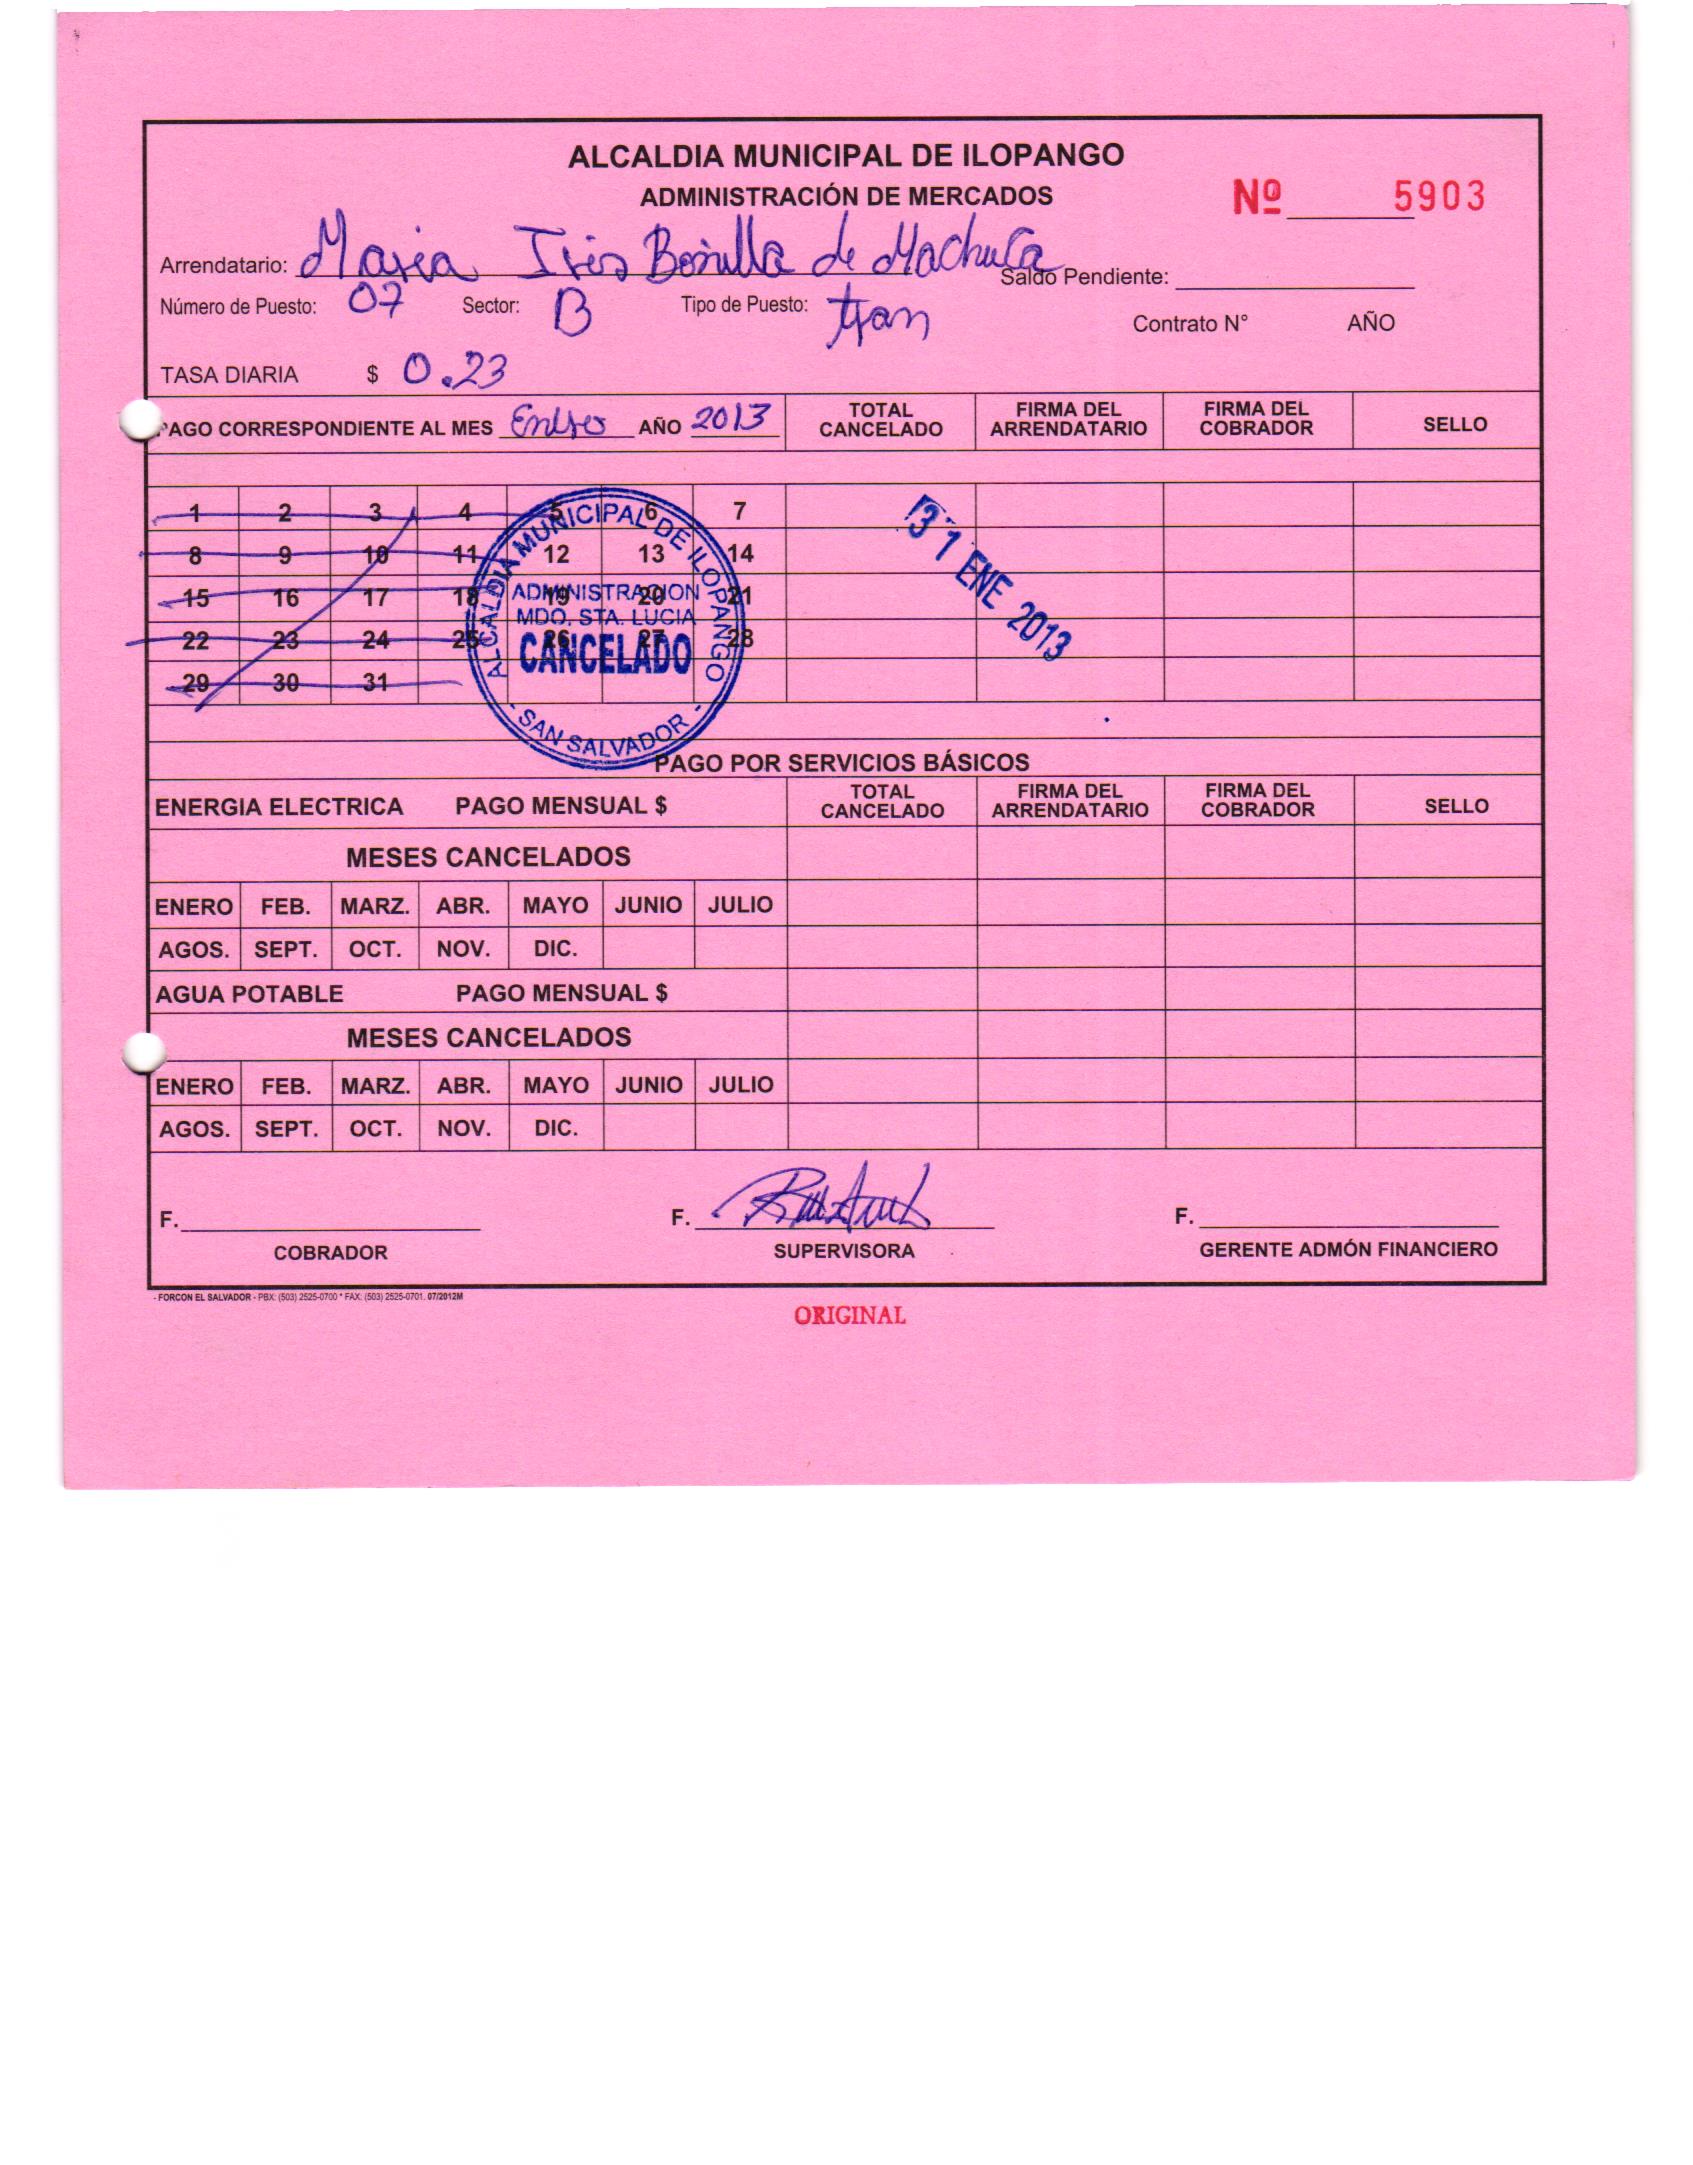 ALCALDIA MUNICIPAL DE ILOPANGO
ADMINISTRACIÓN DE MERCADOS
Nº 5903
Arrendatario: Maria Iris Bonilla de Machuca Saldo Pendiente:
Número de Puesto: 07 Sector: B Tipo de Puesto: tran
Contrato N° AÑO
TASA DIARIA $ 0.23
PAGO CORRESPONDIENTE AL MES Enero AÑO 2013 TOTAL CANCELADO FIRMA DEL ARRENDATARIO FIRMA DEL COBRADOR SELLO
1 2 3 4 5 6 7
8 9 10 11 12 13 14
15 16 17 18 19 20 21
22 23 24 25 26 27 28
29 30 31
ALCALDIA MUNICIPAL DE ILOPANGO
ADMINISTRACION
MDO. STA. LUCIA
CANCELADO
- SAN SALVADOR -
31 ENE 2013
PAGO POR SERVICIOS BÁSICOS
ENERGIA ELECTRICA PAGO MENSUAL $ TOTAL CANCELADO FIRMA DEL ARRENDATARIO FIRMA DEL COBRADOR SELLO
MESES CANCELADOS
ENERO FEB. MARZ. ABR. MAYO JUNIO JULIO
AGOS. SEPT. OCT. NOV. DIC.
AGUA POTABLE PAGO MENSUAL $
MESES CANCELADOS
ENERO FEB. MARZ. ABR. MAYO JUNIO JULIO
AGOS. SEPT. OCT. NOV. DIC.
F. F. F.
COBRADOR SUPERVISORA GERENTE ADMÓN FINANCIERO
- FORCON EL SALVADOR - PBX: (503) 2525-0700 * FAX: (503) 2525-0701. 07/2012M
ORIGINAL